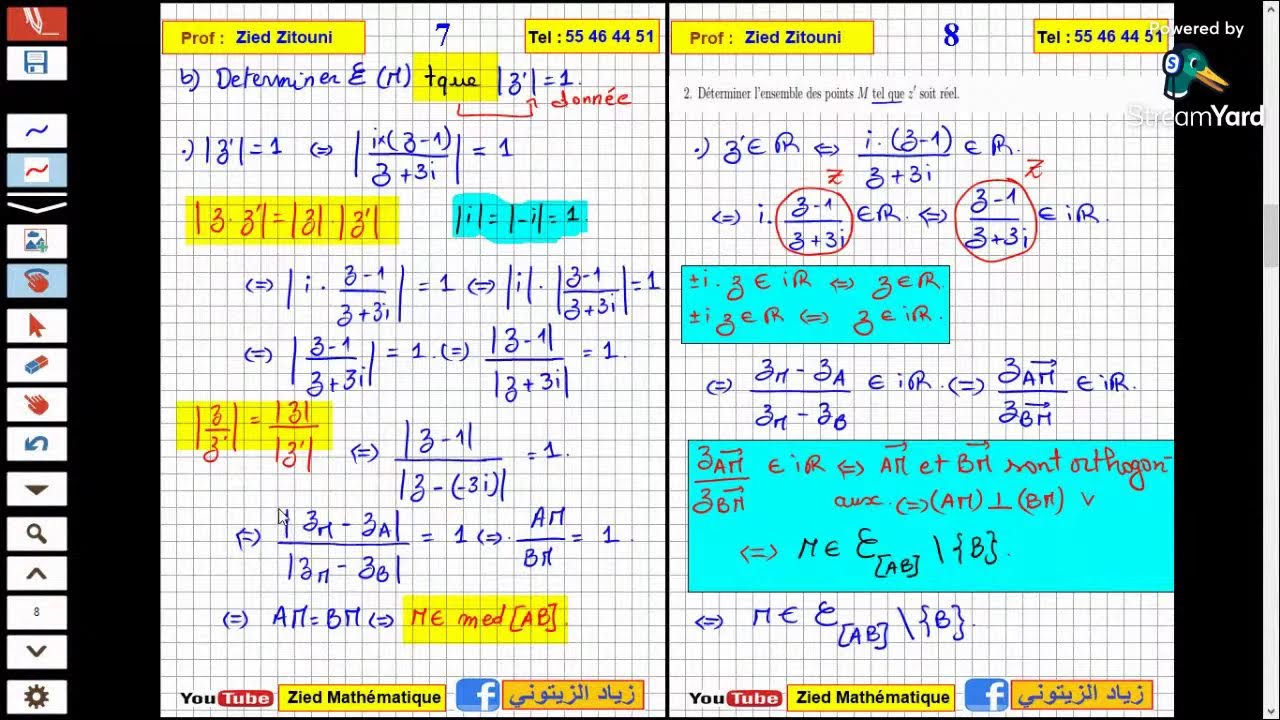 Prof : Zied Zitouni
7
Tel : 55 46 44 51
b) Determiner ℰ(M) tque |z'| = 1.
donnée
•) |z'| = 1 ⇔ |i×(z-1)/(z+3i)| = 1
|z·z'| = |z|·|z'|
|i| = |-i| = 1.
⇔ |i · (z-1)/(z+3i)| = 1 ⇔ |i| · |(z-1)/(z+3i)| = 1
⇔ |(z-1)/(z+3i)| = 1. ⇔ |z-1|/|z+3i| = 1.
|z/z'| = |z|/|z'|
⇔ |z-1|/|z-(-3i)| = 1.
⇔ |zM - zA|/|zM - zB| = 1 ⇔ AM/BM = 1.
⇔ AM = BM ⇔ M∈ med [AB].
YouTube
Zied Mathématique
f
زياد الزيتوني
Prof : Zied Zitouni
8
Tel : 55 46 44 51
Powered by
StreamYard
2. Déterminer l'ensemble des points M tel que z' soit réel.
•) z'∈ℝ ⇔ i·(z-1)/(z+3i) ∈ ℝ.
Z
Z
⇔ i · (z-1)/(z+3i) ∈ℝ. ⇔ (z-1)/(z+3i) ∈ iℝ.
±i·z ∈ iℝ ⇔ z∈ℝ.
±i z∈ℝ ⇔ z∈iℝ.
⇔ (zM - zA)/(zM - zB) ∈ iℝ. ⇔ zAM/zBM ∈ iℝ.
zAM/zBM ∈ iℝ ⇔ AM et BM sont orthogon-
aux. ⇔ (AM) ⊥ (BM)
⇔ M∈ ℰ[AB] \ {B}.
⇔ M∈ ℰ[AB] \ {B}.
YouTube
Zied Mathématique
f
زياد الزيتوني
8